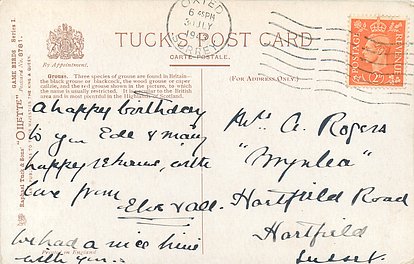 OXTED
6 45PM
31 JLY
SURREY
TUCK'S POST CARD
CARTE POSTALE.
By Appointment.
(FOR ADDRESS ONLY.)
GROUSE. Three species of grouse are found in Britain—
the black grouse or blackcock, the wood grouse or caper-
cailzie, and the red grouse shown in the picture, to which
the name is usually restricted. It is peculiar to the British
area and is most plentiful in the Highlands of Scotland.
POSTAGE
REVENUE
Raphael Tuck & Sons' "OILETTE"
GAME BIRDS. Series I.
Postcard No.
A happy birthday
to you Ede & many
happy returns, with
love from
Elsie & all.
We had a nice time
with you
Mrs A. Rogers
"Mynlea"
Hartfield Road
Hartfield
Sussex.